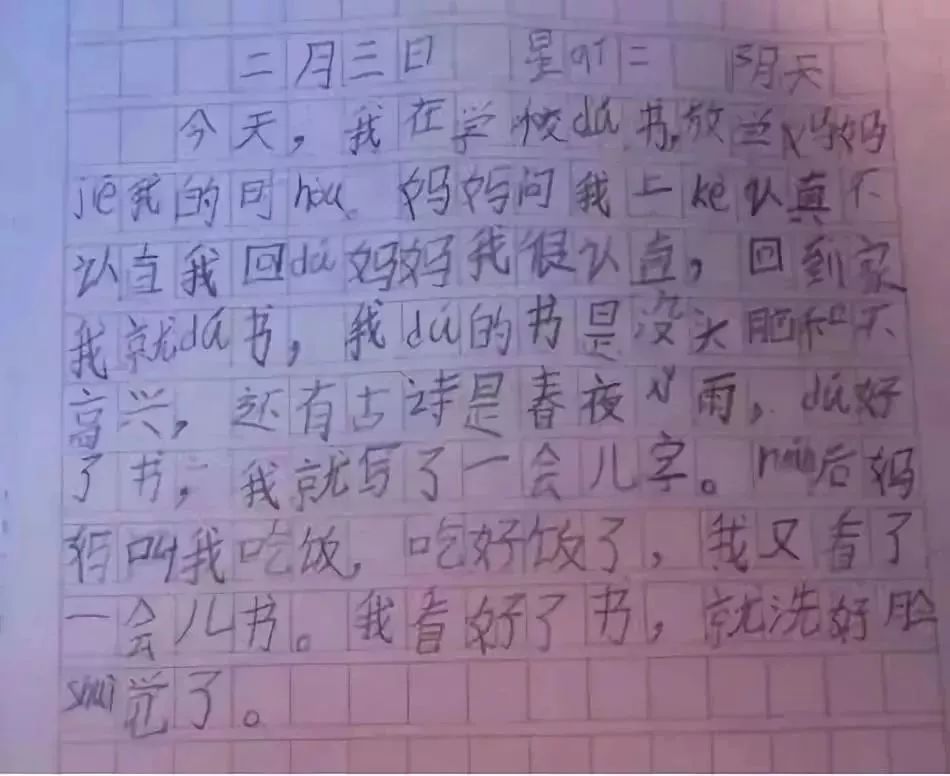 二月三日 星qī二 阴天
今天，我在学校dú书,放学妈妈
jiē我的时hòu。妈妈问我上kè认真不
认真我回dá妈妈我很认真，回到家
我就dú书，我dú的书是没头脑和不
高兴，还有古诗是春夜xǐ雨，dú好
了书，我就写了一会儿字。rán后妈
妈叫我吃饭，吃好饭了，我又看了
一会儿书。我看好了书，就洗好脸
shuì觉了。